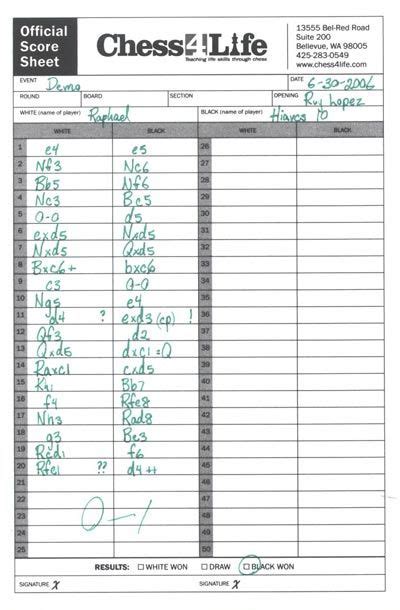 Official
Score
Sheet
Chess4Life
Teaching life skills through chess
13555 Bel-Red Road
Suite 200
Bellevue, WA 98005
425-283-0549
www.chess4life.com
EVENT Demo DATE 6-30-2006
ROUND BOARD SECTION OPENING Ruy Lopez
WHITE (name of player) Raphael BLACK (name of player) Hiarcs 10
WHITE BLACK WHITE BLACK
1 e4 e5 26
2 Nf3 Nc6 27
3 Bb5 Nf6 28
4 Nc3 Bc5 29
5 0-0 d5 30
6 exd5 Nxd5 31
7 Nxd5 Qxd5 32
8 Bxc6+ bxc6 33
9 c3 0-0 34
10 Ng5 e4 35
11 d4 ? exd3 (ep) ! 36
12 Qf3 d2 37
13 Qxd5 dxc1=Q 38
14 Raxc1 cxd5 39
15 Kh1 Bb7 40
16 f4 Rfe8 41
17 Nh3 Rad8 42
18 g3 Be3 43
19 Rcd1 f6 44
20 Rfe1 ?? d4++ 45
21 46
22 47
23 48
24 49
25 50
0-1
RESULTS: WHITE WON DRAW BLACK WON
SIGNATURE X SIGNATURE X